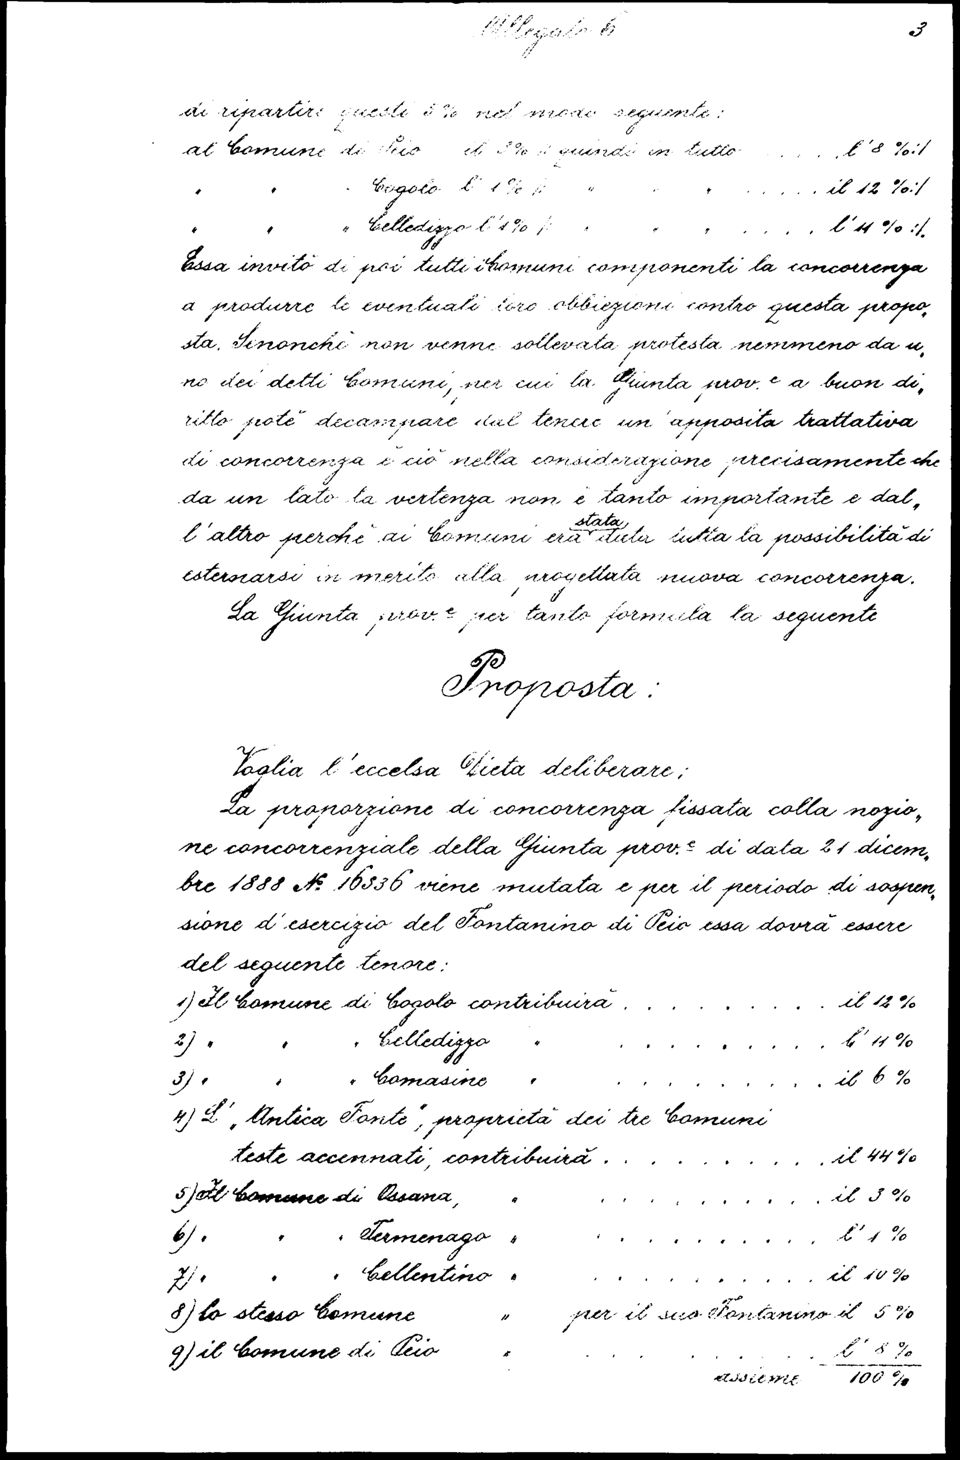 Allegato 6 3
di ripartire questi 5% nel modo seguente:
al Comune di Peio il 3% /: quindi in tutto . . . . l'8 %:/
" " " Cogolo l'1% /: " " " . . . . . il 12 %:/
" " " Celledizzo l'1% /: " " " . . . . l'11 %:/.
Essa invitò di poi tutti i Comuni componenti la concorrenza
a produrre le eventuali loro obbiezioni contro questa propo„
sta. Senonchè non venne sollevata protesta nemmeno da u„
no dei detti Comuni, per cui la Giunta prov.e a buon di„
ritto potè decampare dal tenere un'apposita trattativa
di concorrenza e ciò nella considerazione precisamente che
da un lato la vertenza non è tanto importante e dal„
l'altro perchè ai Comuni era stata data tutta la possibilità di
esternarsi in merito alla progettata nuova concorrenza.
La Giunta prov.e per tanto formula la seguente
Proposta:
Voglia l'eccelsa Dieta deliberare;
La proporzione di concorrenza fissata colla nozio„
ne concorrenziale della Giunta prov.e di data 21 dicem„
bre 1888 No 16336 viene mutata e per il periodo di sospen„
sione d'esercizio del Fontanino di Peio essa dovrà essere
del seguente tenore:
1) Il Comune di Cogolo contribuirà . . . . . . . . . il 12 %
2) " " " Celledizzo " . . . . . . . . . l'11 %
3) " " " Comasine " . . . . . . . . . . il 6 %
4) L'„Antica Fonte", proprietà dei tre Comuni
teste accennati, contribuirà . . . . . . . . . . il 44 %
5) Il Comune di Ossana, " . . . . . . . . . . il 3 %
6) " " " Termenago " . . . . . . . . . . l'1 %
7) " " " Cellentino " . . . . . . . . . . il 10 %
8) lo stesso Comune " per il suo Fontanino il 5 %
9) il Comune di Peio " . . . . . . . l'8 %
assieme 100 %